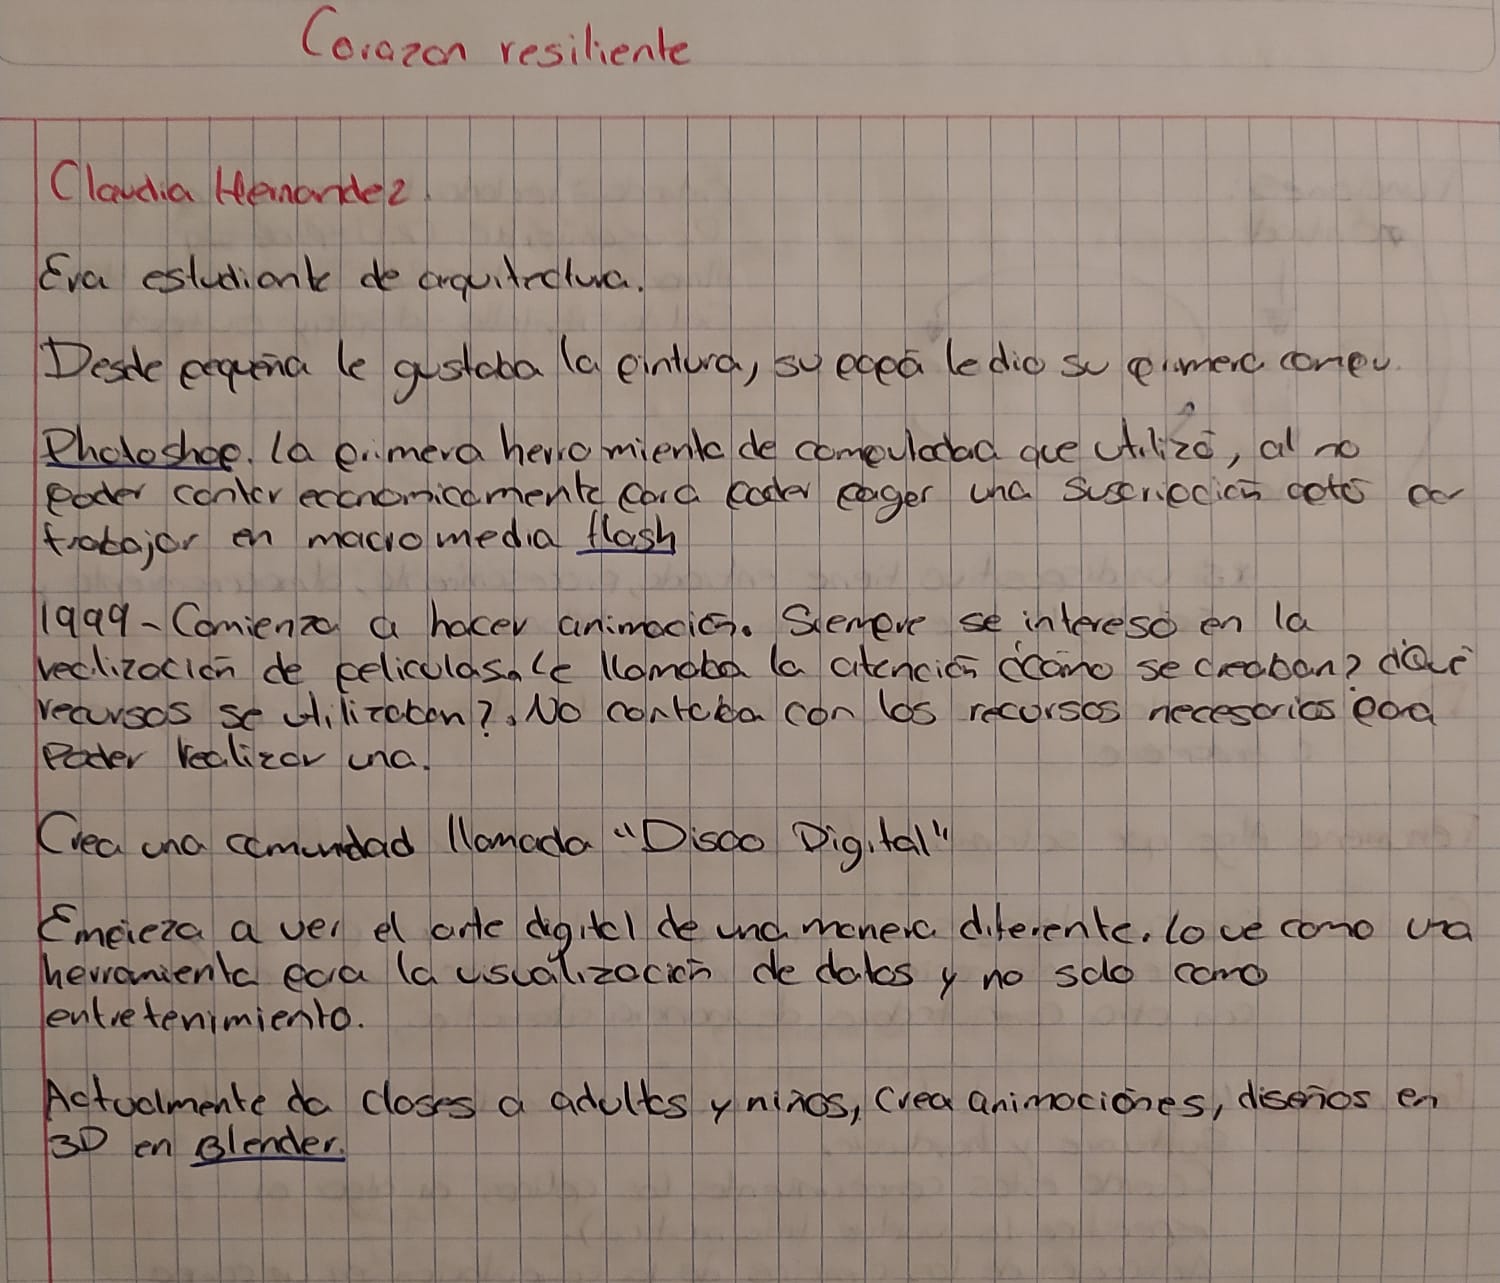 Corazon resiliente
Claudia Hernandez.
Era estudiante de arquitectura.
Desde pequeña le gustaba la pintura, su papá le dio su primera compu.
Photoshop. La primera herramienta de computadad que utilizó, al no
poder contar economicamente para poder pagar una suscripción optó por
trabajar en macromedia flash
1999-Comienza a hacer animación. Siempre se interesó en la
realización de peliculas. Le llamaba la atención ¿cómo se creaban? ¿Qué
recursos se utilizaban?. No contaba con los recursos necesarios para
Poder realizar una.
Crea una comundad llamada "Disco Digital"
Empieza a ver el arte digital de una manera diferente. Lo ve como una
herramienta para la visualización de datos y no solo como
entretenimiento.
Actualmente da clases a adultos y niños, crea animaciónes, diseños en
3D en Blender.